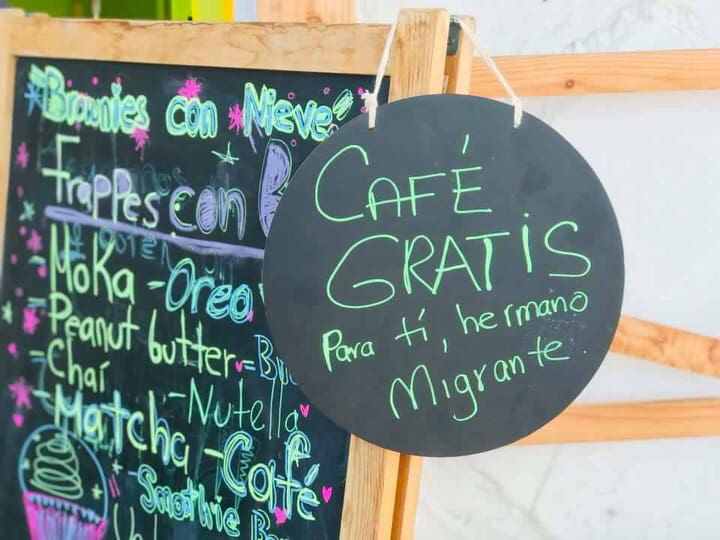 Brownies con Nieve
Frappes con
- Moka - Oreo
- Peanut butter =
- Chaí - Nutella
- Matcha - Café
- Smoothie
CAFÉ
GRATIS
Para tí, hermano
Migrante.